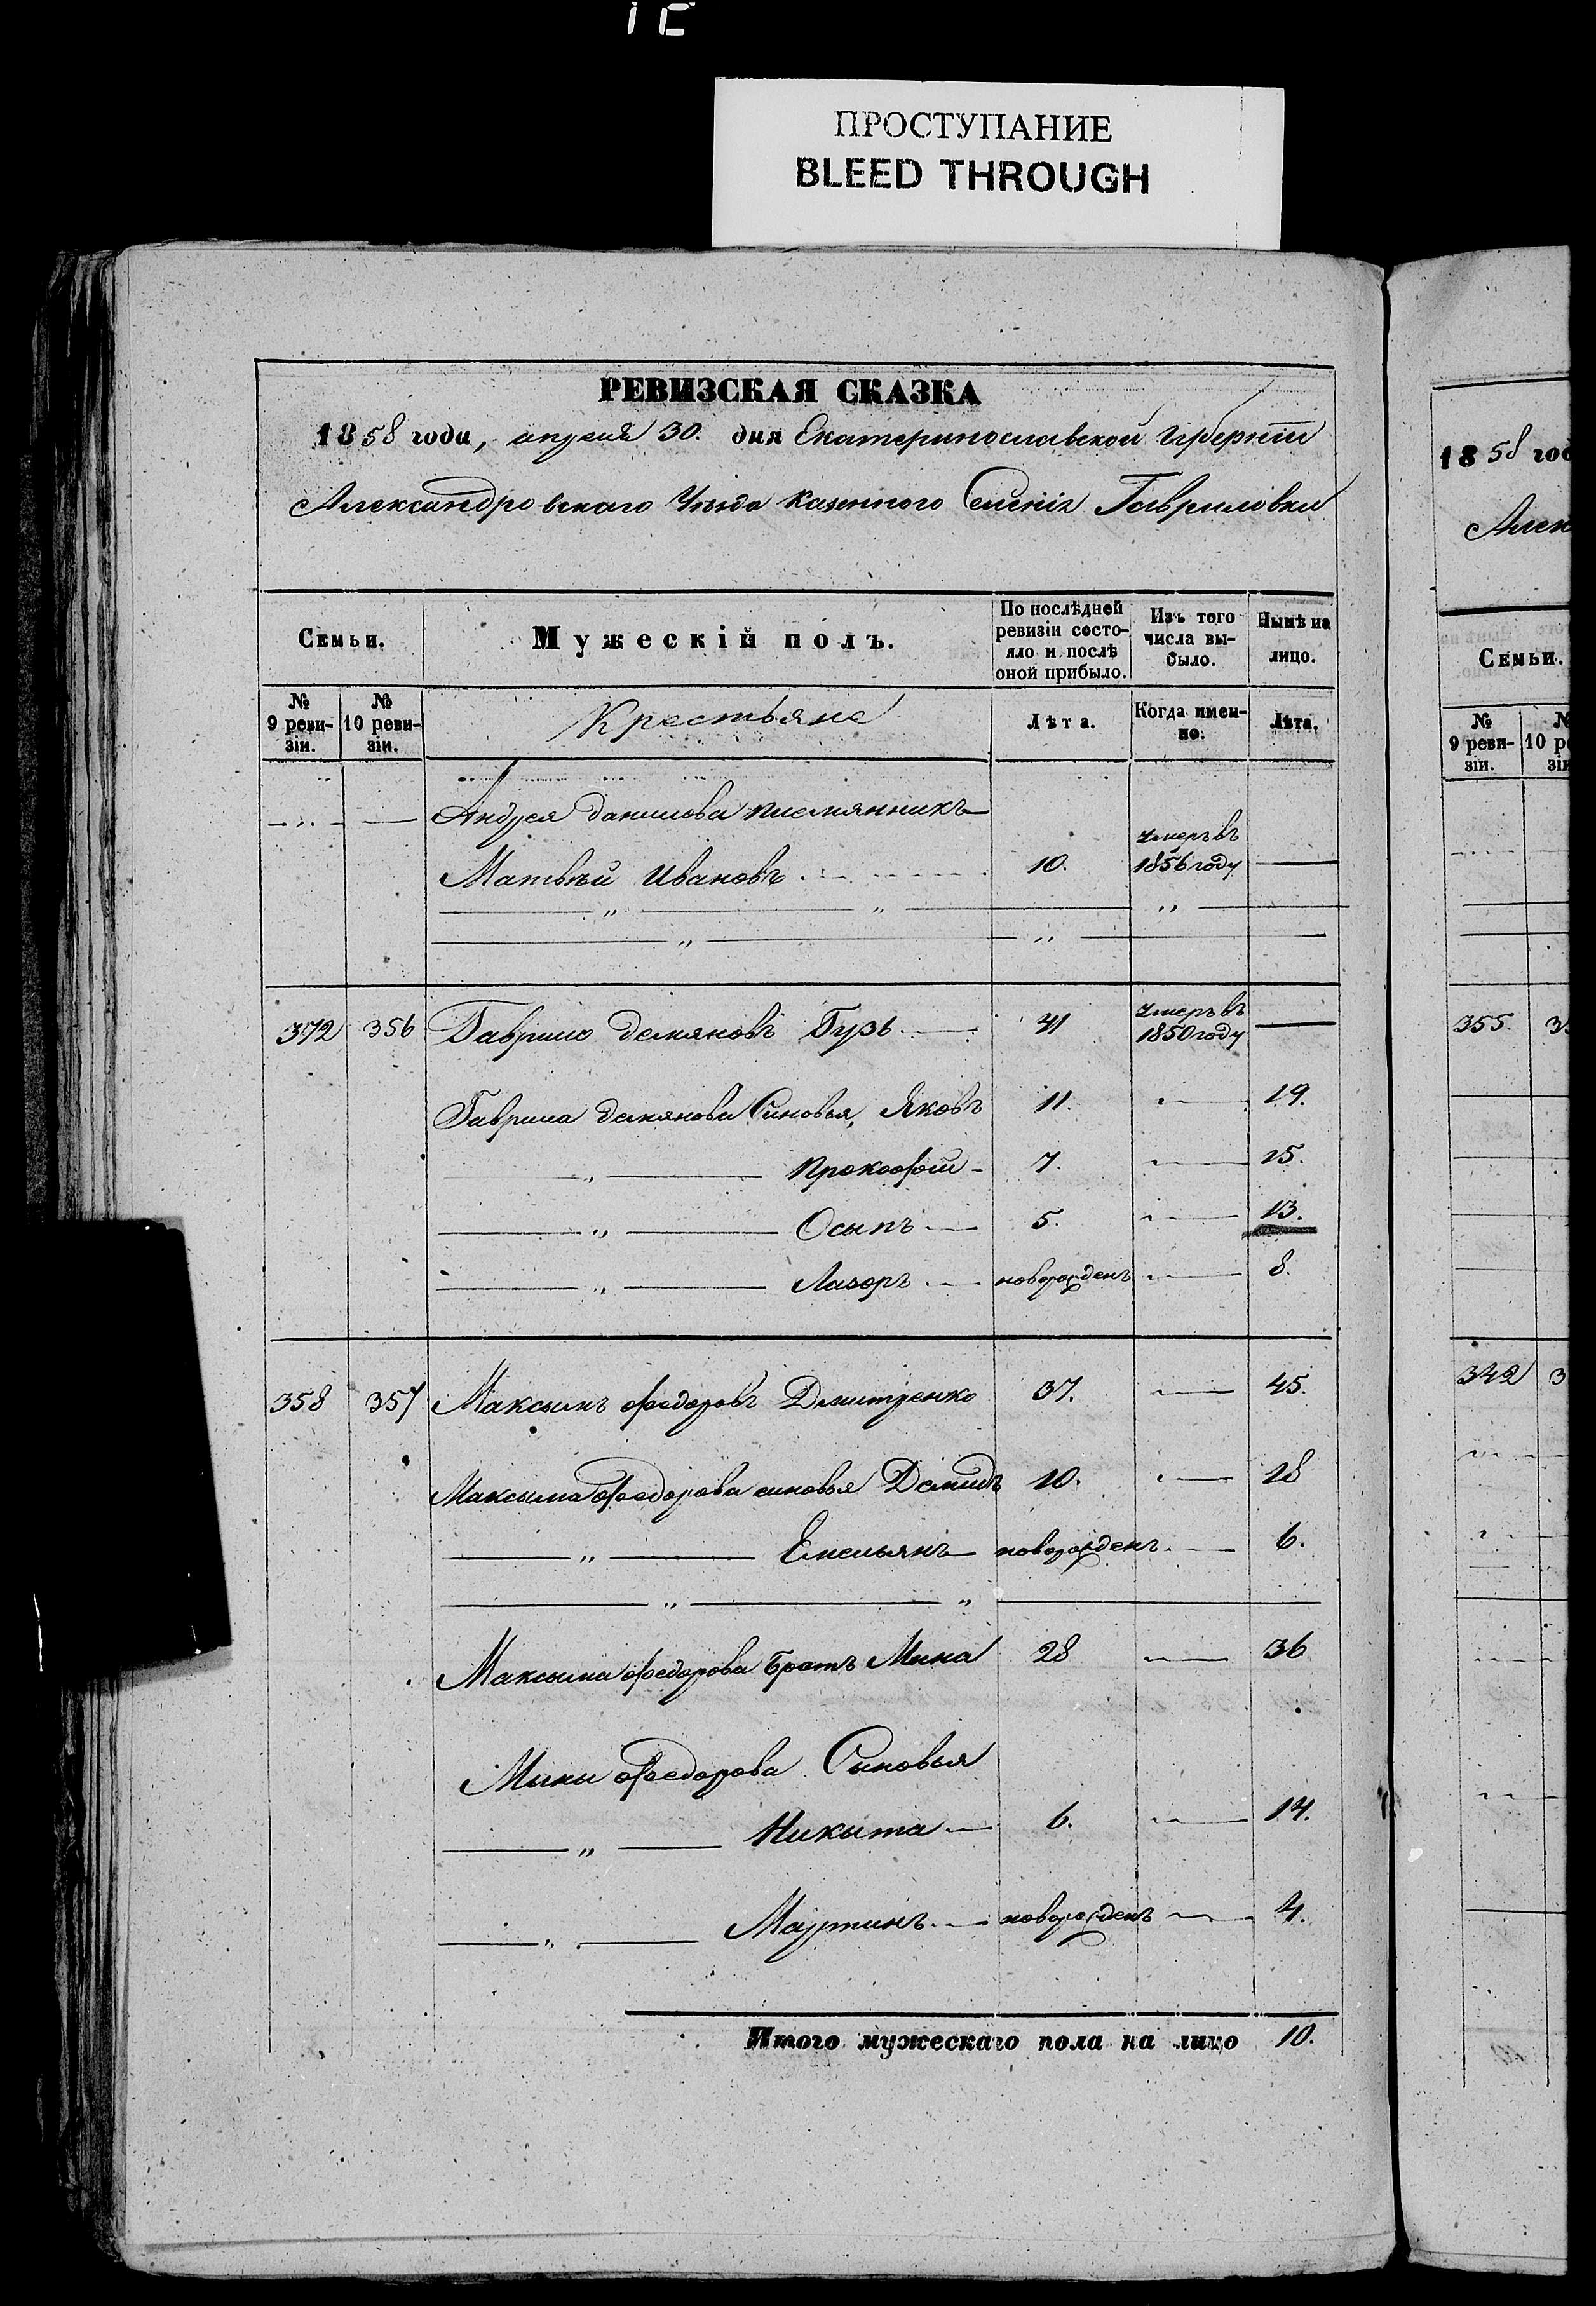 ПРОСТУПАНИЕ
BLEED THROUGH
РЕВИЗСКАЯ СКАЗКА
1858 года, апреля 30. дня Екатеринославской Губерніи
Александровскаго Уѣзда Казенного Селенія Гавриловки
Семьи. Мужескій полъ. По послѣдней ревизіи состо-яло и послѣ оной прибыло. Изъ того числа вы-было. Нынѣ на лицо.
№ 9 реви-зіи. № 10 реви-зіи. Крестьяне Лѣта. Когда имен-но. Лѣта.
Андрея Данилова племянникъ
Матвѣй Ивановъ 10. умеръ въ 1856 году
372 356 Гаврило Демяновъ Гузь 41 умеръ въ 1850 году
Гаврила Демянова Синовья, Яковъ 11. 19.
" Прокофий 7. 15.
" Осыпъ 5. 13.
" Лазорь новорожденъ 8.
358 357 Максымъ Федоровъ Дмитренко 37. 45.
Максыма Федорова синовья Демидъ 10. 18
" Емельянъ новорожденъ 6.
Максыма Федорова Братъ Мина 28 36
Мины Федорова Сыновья
" Никыта 6. 14.
" Мартинъ новорожденъ 4.
Итого мужескаго пола на лицо 10.
1858 год
Алек
Семьи.
№ 9 реви-зіи.
355.
342